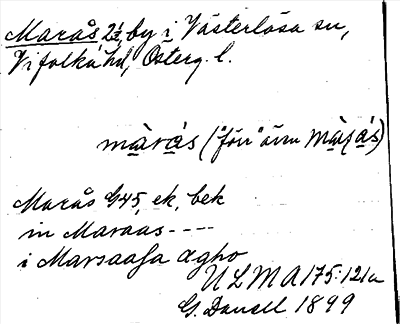 Marås 2½, by i Västerlösa sn,
Vifolka hd, Österg. l.
màrás ("förr" även
Marås G45, ek, bek
in Maraas ----
i Marsaasa ægho
ULMA 175:121a
G. Danell 1899